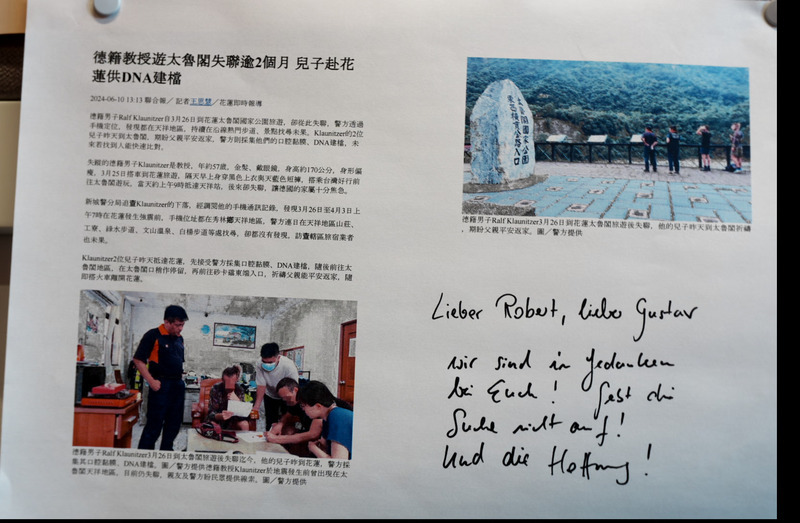 德籍教授遊太魯閣失聯逾2個月 兒子赴花
蓮供DNA建檔
2024-06-10 13:13 聯合報／記者王思慧／花蓮即時報導
德籍男子Ralf Klaunitzer自3月26日到花蓮太魯閣國家公園旅遊，卻從此失聯，警方透過
手機定位，發現都在天祥地區，持續在沿線熱門步道、景點找尋未果。Klaunitzer的2位
兒子昨天到太魯閣，期盼父親平安返家，警方則採集他們的口腔黏膜、DNA建檔，未
來若找到人能快速比對。
失蹤的德籍男子Klaunitzer是教授，年約57歲，金髮、戴眼鏡，身高約170公分，身形偏
瘦，3月25日搭車到花蓮旅遊，隔天早上身穿黑色上衣與天藍色短褲，搭乘台灣好行前
往太魯閣遊玩，當天約上午9時抵達天祥站，後來卻失聯，讓德國的家屬十分焦急。
新城警分局追查Klaunitzer的下落，經調閱他的手機通訊記錄，發現3月26日至4月3日上
午7時在花蓮發生強震前，手機位址都在秀林鄉天祥地區，警方連日在天祥地區山莊、
工寮、綠水步道、文山溫泉、白楊步道等處找尋，卻都沒有發現，訪查轄區旅宿業者
也未果。
Klaunitzer2位兒子昨天抵達花蓮，先接受警方採集口腔黏膜、DNA建檔，隨後前往太
魯閣地區，在太魯閣口稍作停留，再前往砂卡礑東端入口，祈禱父親能平安返家，隨
即搭火車離開花蓮。
德籍男子Ralf Klaunitzer3月26日到太魯閣旅遊後失聯迄今，他的兒子昨到花蓮，警方採
集其口腔黏膜、DNA建檔。圖／警方提供德籍教授Klaunitzer於地震發生前曾出現在太
魯閣天祥地區，目前仍失聯，親友及警方盼民眾提供線索。圖／警方提供
太魯閣國家公園
東西橫貫公路入口
德籍男子Ralf Klaunitzer3月26日到花蓮太魯閣旅遊後失聯，他的兒子昨天到太魯閣祈禱
，期盼父親平安返家。圖／警方提供
Lieber Robert, liebe Gustav
wir sind in Gedanken
bei Euch! Gebt die
Suche nicht auf!
Und die Hoffnung!